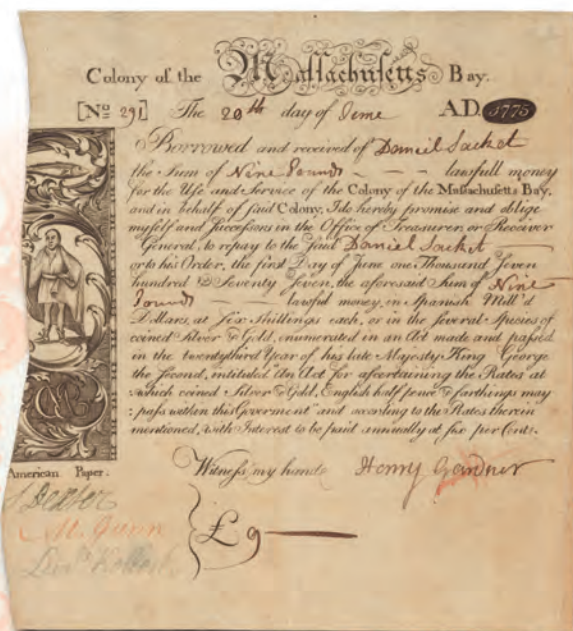 Colony of the Massachusetts Bay.
[No 291] The 20th day of June A.D. 1775
Borrowed and received of Daniel Sacket
the Sum of Nine Pounds — — — lawfull money
for the Use and Service of the Colony of the Massachusetts Bay,
and in behalf of said Colony, I do hereby promise and oblige
myself and Successors in the Office of Treasurer, or Receiver
General, to repay to the said Daniel Sacket —
or to his Order, the first Day of June one Thousand Seven
hundred & Seventy Seven, the aforesaid Sum of Nine
Pounds — lawful money, in Spanish Mill'd
Dollars, at Six Shillings each, or in the several Species of
coined Silver & Gold, enumerated in an Act made and passed
in the twentythird Year of his late Majesty King George
the Second, intituled "An Act for ascertaining the Rates at
which coined Silver & Gold, English half pence & farthings may
pass within this Goverment" and according to the Rates therein
mentioned, with Interest to be paid annually at six per Cent.
Witness my hand Henry Gardner
American Paper.
S Dexter
M. Gunn
£ 9 —